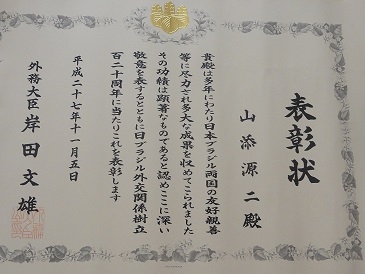 表彰状
山添源二殿
貴殿は多年にわたり日本ブラジル両国の友好親善
等に尽力され多大な成果を収めてこられました
その功績は顕著なものであると認めここに深い
敬意を表するとともに日ブラジル外交関係樹立
百二十周年に当たりこれを表彰します
平成二十七年十一月五日
外務大臣 岸田文雄